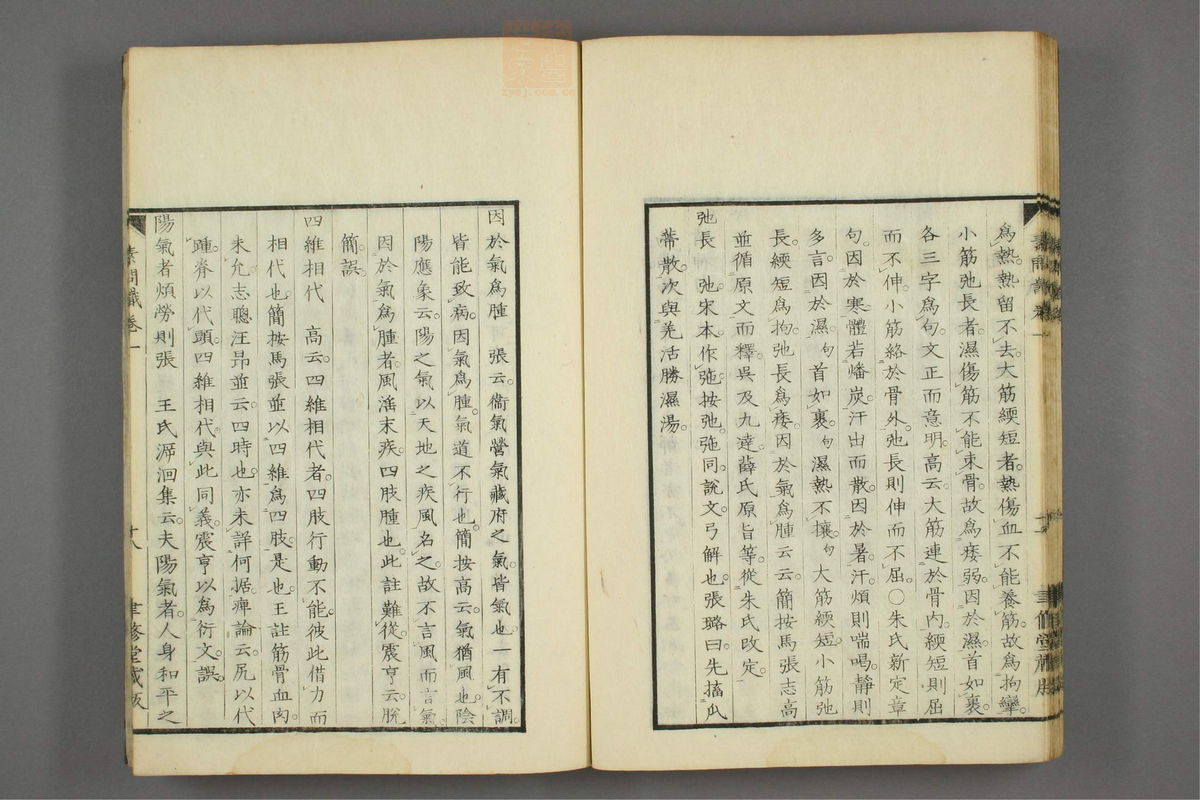 爲熱熱留不去大筋緛短者熱傷血不能養筋故爲拘攣
小筋弛長者濕傷筋不能束骨故爲痿弱因於濕首如裹
各三字爲句文正而意明高云大筋連於骨内緛短則屈
而不伸小筋絡於骨外弛長則伸而不屈○朱氏新定章
句因於寒體若燔炭汗出而散因於暑汗煩則喘喝靜則
多言因於濕句首如裹句濕熱不攘句大筋緛短小筋弛
長緛短爲拘弛長爲痿因於氣爲腫云云簡按馬張志高
並循原文而釋吳及九達薛氏原旨等從朱氏改定
弛長 弛宋本作㢮按弛㢮同說文弓解也張璐曰先搐瓜
蒂散次與羌活勝濕湯
因於氣爲腫 張云衞氣營氣藏府之氣皆氣也一有不調
皆能致病因氣爲腫氣道不行也簡按高云氣猶風也陰
陽應象云陽之氣以天地之疾風名之故不言風而言氣
因於氣爲腫者風淫末疾四肢腫也此註難從震亨云脫
簡誤
四維相代 高云四維相代者四肢行動不能彼此借力而
相代也簡按馬張並以四維爲四肢是也王註筋骨血肉
未允志聰汪昂並云四時也亦未詳何据痺論云尻以代
踵脊以代頭四維相代與此同義震亨以爲衍文誤
陽氣者煩勞則張 王氏泝洄集云夫陽氣者人身和平之
素問識卷一
十八
聿修堂藏版